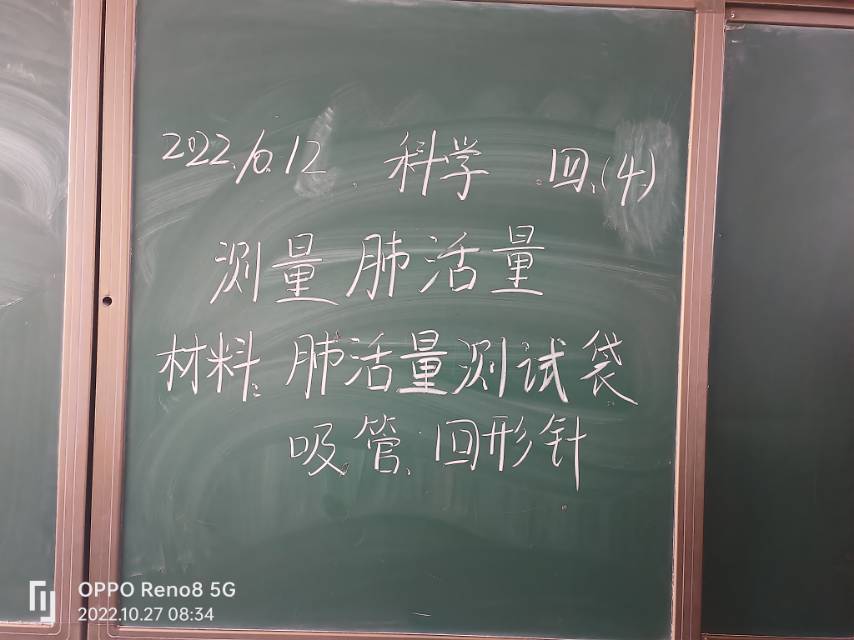 2022.10.12 科学 四.(4)
测量肺活量
材料: 肺活量测试袋
吸管、回形针
OPPO Reno8 5G
2022.10.27 08:34